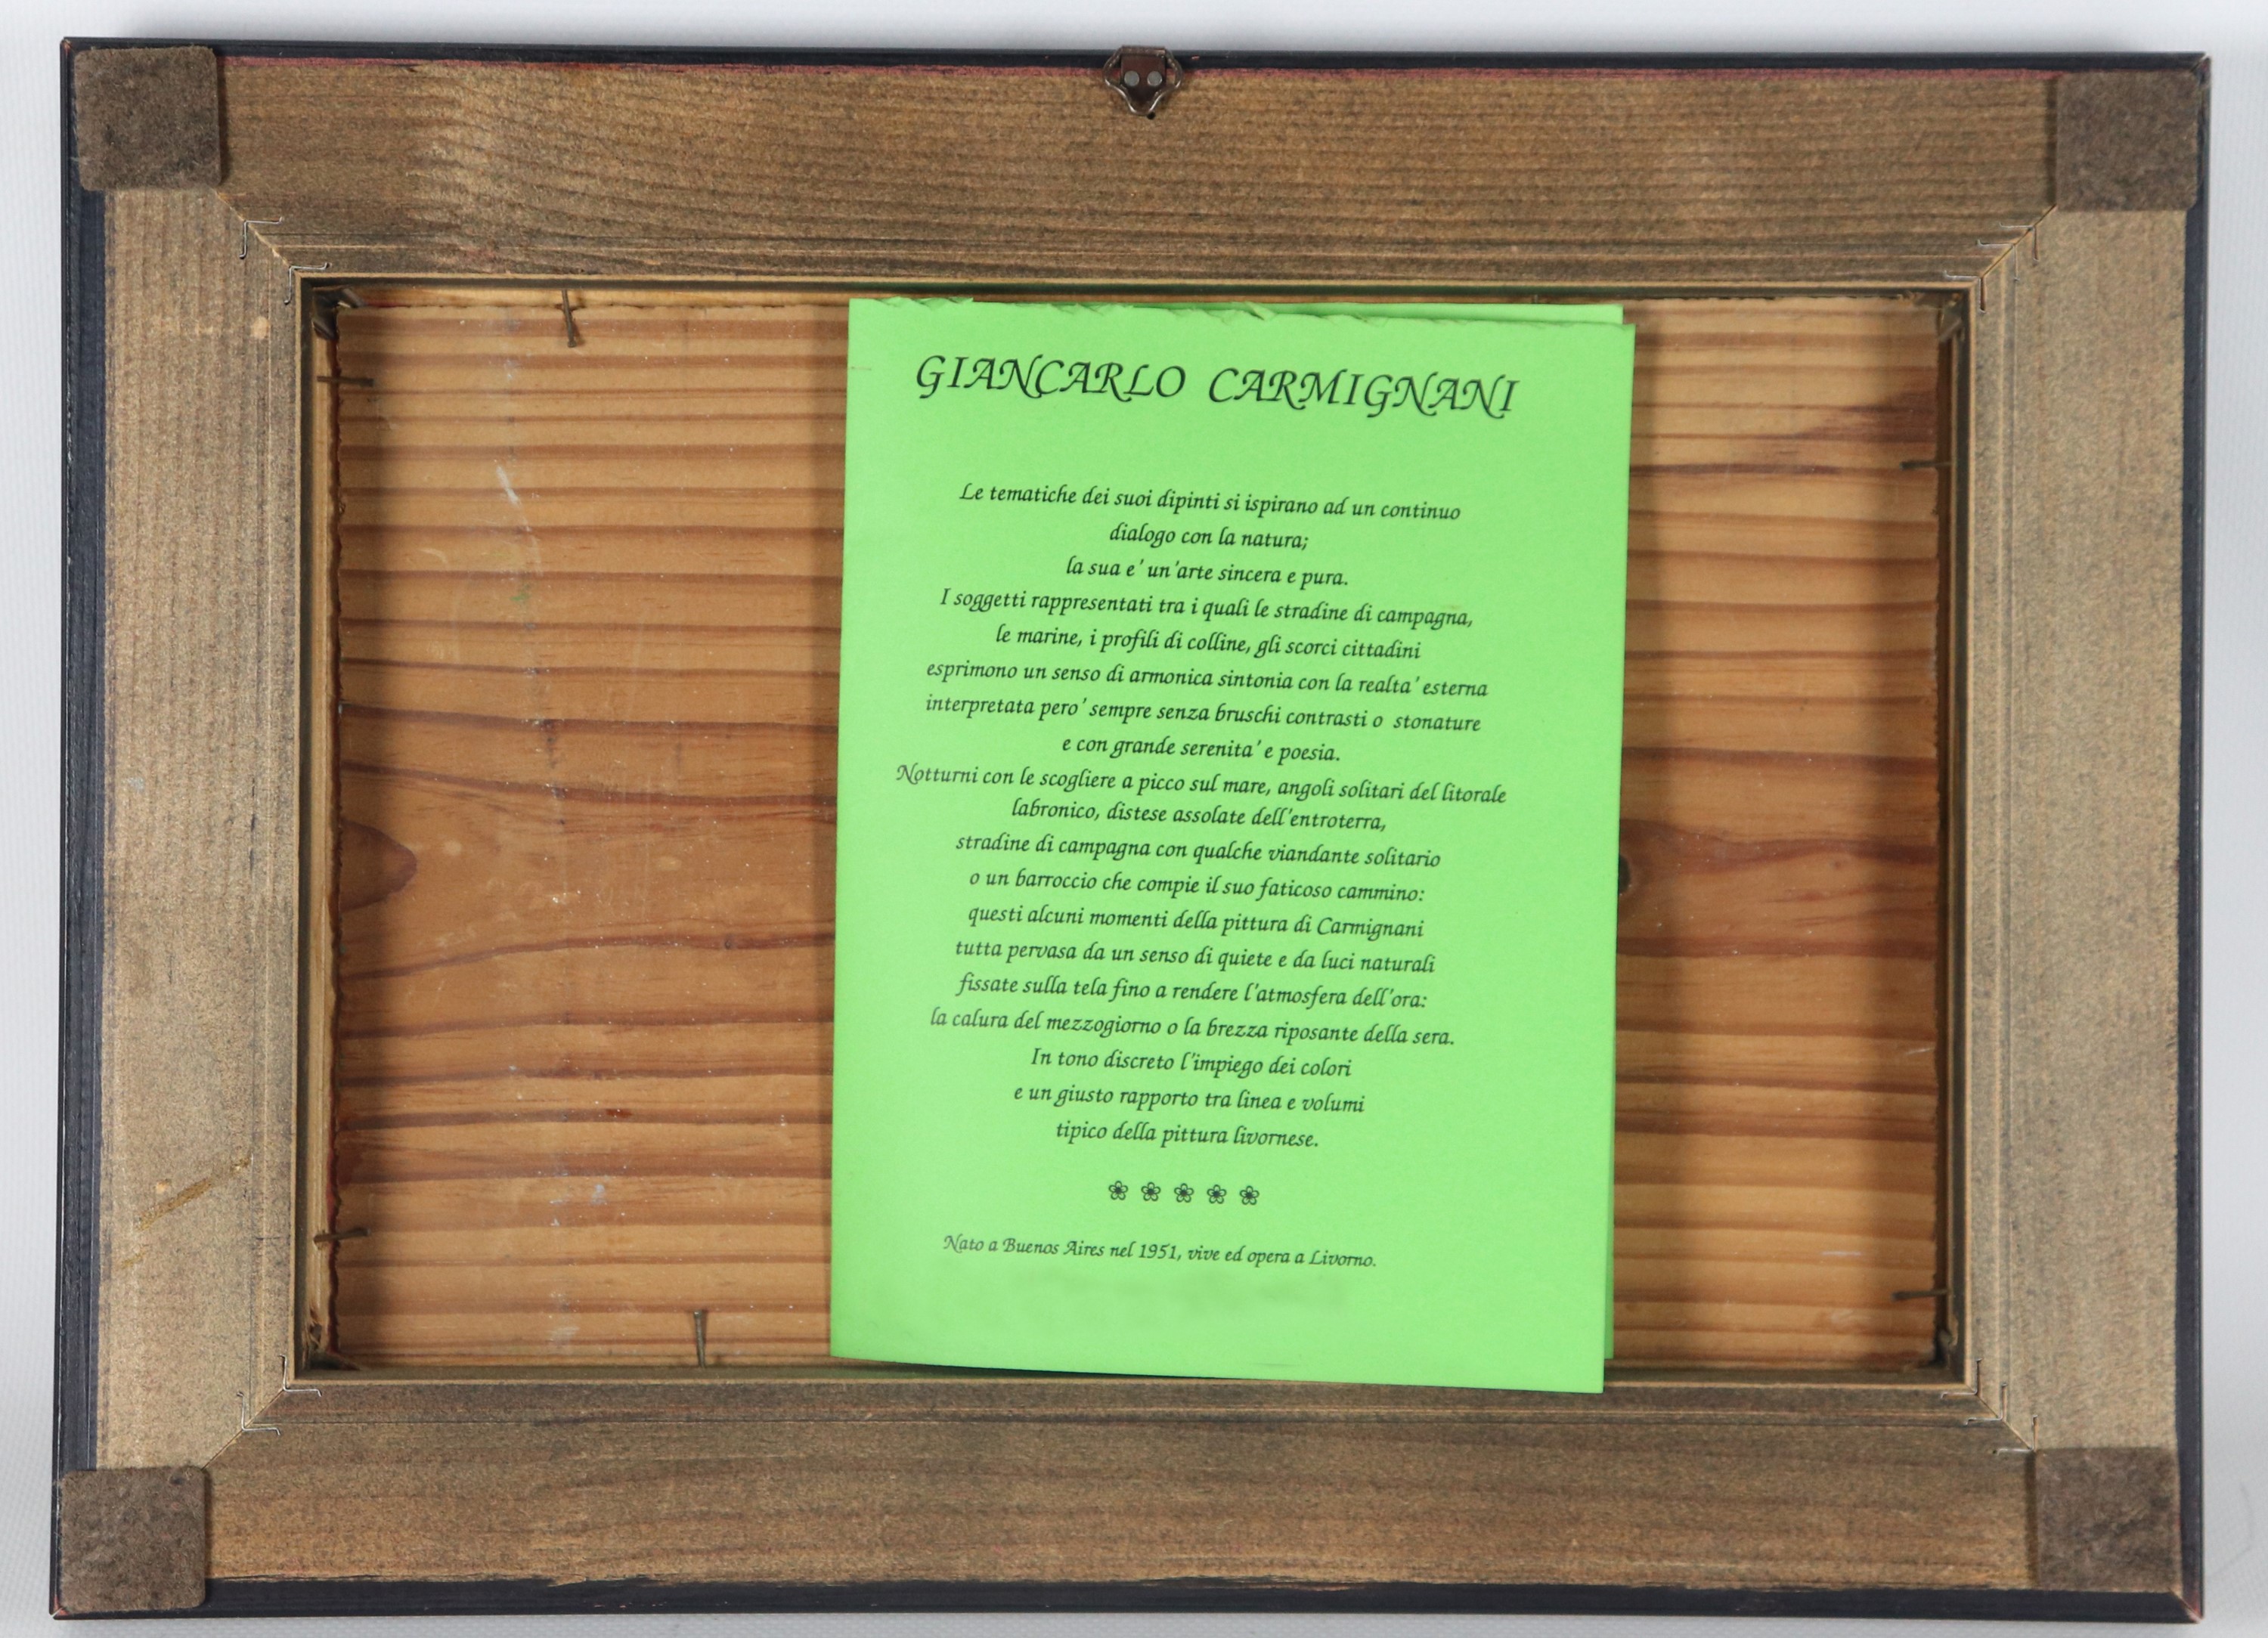 GIANCARLO CARMIGNANI
Le tematiche dei suoi dipinti si ispirano ad un continuo
dialogo con la natura;
la sua e' un'arte sincera e pura.
I soggetti rappresentati tra i quali le stradine di campagna,
le marine, i profili di colline, gli scorci cittadini
esprimono un senso di armonica sintonia con la realta' esterna
interpretata pero' sempre senza bruschi contrasti o stonature
e con grande serenita' e poesia.
Notturni con le scogliere a picco sul mare, angoli solitari del litorale
labronico, distese assolate dell'entroterra,
stradine di campagna con qualche viandante solitario
o un barroccio che compie il suo faticoso cammino:
questi alcuni momenti della pittura di Carmignani
tutta pervasa da un senso di quiete e da luci naturali
fissate sulla tela fino a rendere l'atmosfera dell'ora:
la calura del mezzogiorno o la brezza riposante della sera.
In tono discreto l'impiego dei colori
e un giusto rapporto tra linea e volumi
tipico della pittura livornese.
Nato a Buenos Aires nel 1951, vive ed opera a Livorno.